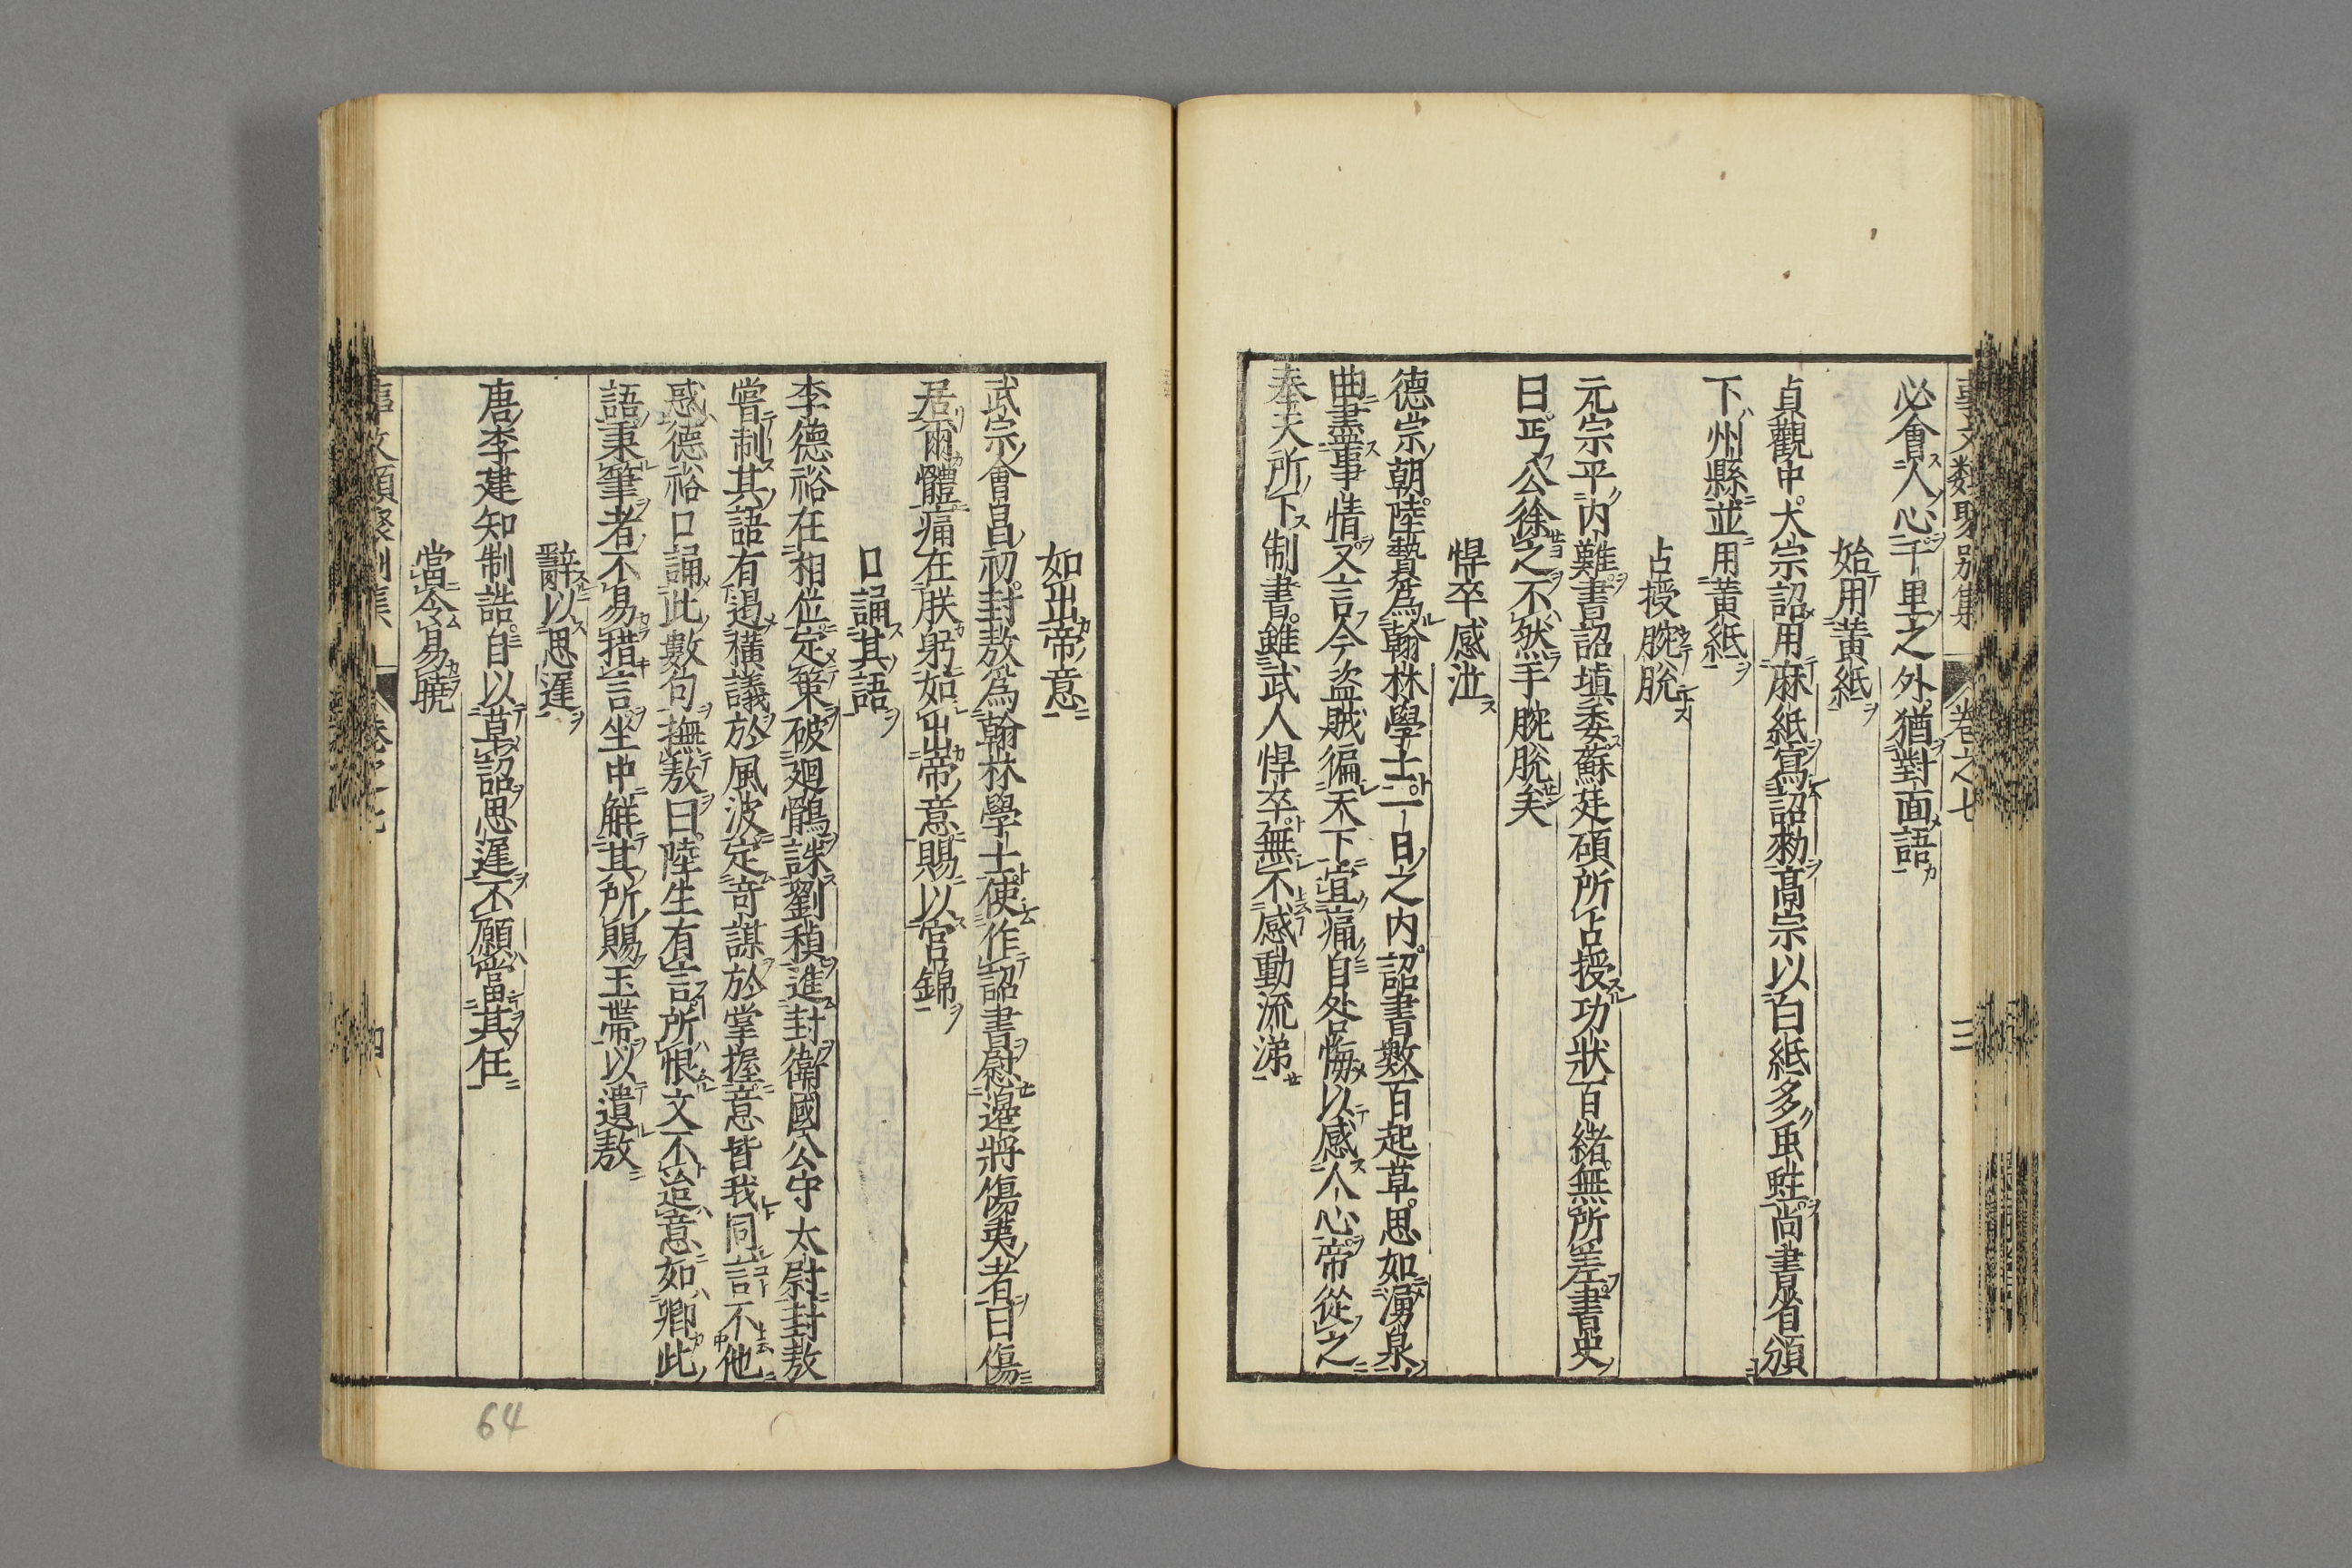 必會人心千里之外猶對面語
始用黃紙
貞觀中太宗詔用麻紙寫詔勑高宗以白紙多虫蛀尚書省頒
下州縣並用黃紙
占授腕脫
元宗平內難書詔塡委蘇廷碩所占授功狀百緒無所差書史
曰丐公徐之不然手腕脫矣
悍卒感泣
德宗朝陸贄爲翰林學士一日之內詔書數百起草思如湧泉
曲盡事情又言今盜賊徧天下宜痛自咎悔以感人心帝從之
奉天所下制書雖武人悍卒無不感動流涕
如出帝意
武宗會昌初封敖爲翰林學士使作詔書慰邊將傷夷者曰傷
居爾體痛在朕躬如出帝意賜以宮錦
口誦其語
李德裕在相位定策破迴鶻誅劉稹進封衞國公守太尉封敖
嘗制其語有遏橫議於風波定奇謀於掌握意皆我同言不他
惑德裕口誦此數句撫敖曰陸生有言所恨文不迨意如卿此
語秉筆者不易措言坐中解其所賜玉帶以遺敖
辭以思遲
唐李建知制誥自以草詔思遲不願當其任
當令易曉
卷之七
三
64